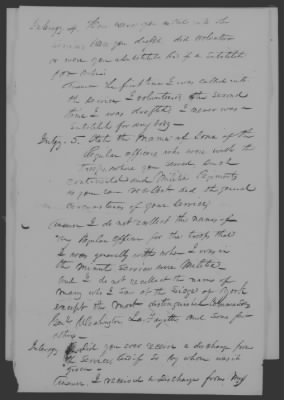 Interogy 4. How were you called into the
service were you drafted did volunteer
or were you a substitute & if a substitute
for whom
Answer the first time I was called into
the service I volunteered the second
time I was drafted, I never was a
substitute for any body
Interogy. 5. State the names of some of the
Regular officers who were with the
troops where you served such
continental and Militia Regiments
as you can recollect and the general
circumstances of your services
Answer I do not recollect the names of
any Regular officers for the troops that
I was generally with when I was in
the service were Militia
and I do not recollect the names of
many who I saw at the Siege of York
except the most distinguished
Genl. Washington La Fayette and some few
others
Interogy 6 Did you ever receive a discharge from
the service & if so by whom was it
given
Answer, I received a discharge from my